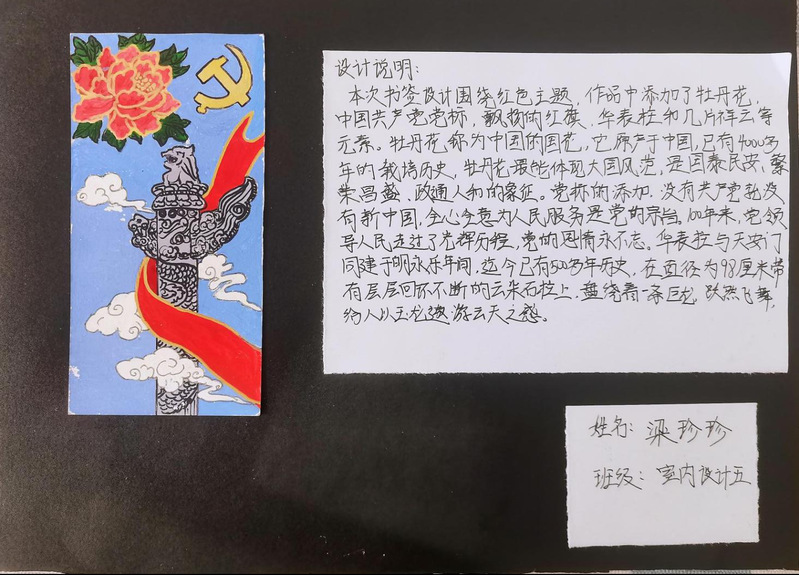 设计说明:
本次书签设计围绕红色主题,作品中添加了牡丹花,
中国共产党党标,飘扬的红旗、华表柱和几片祥云等
元素。牡丹花称为中国的国花,它原产于中国,已有4000多
年的栽培历史,牡丹花最能体现大国风范,是国泰民安,繁
荣昌盛、政通人和的象征。党标的添加,没有共产党就没
有新中国,全心今意为人民服务是党的宗旨,100年来,党领
导人民走过了光辉历程,党的恩情永不忘。华表柱与天安门
同建于明永乐年间,迄今已有500多年历史,在直径为98厘米带
有层层回环不断的云朵石柱上,盘绕着一条巨龙,跃然飞舞,
给人以玉龙遨游云天之感。
姓名:梁珍珍
班级:室内设计五